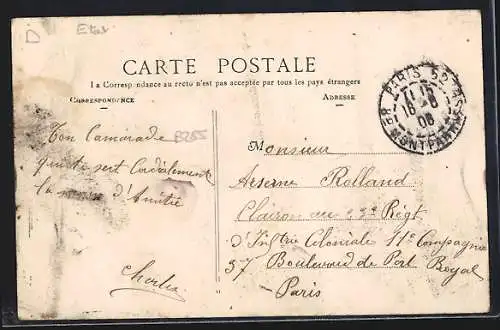 D
Etat
CARTE POSTALE
La Correspondance au recto n'est pas acceptée par tous les pays étrangers
CORRESPONDANCE
ADRESSE
PARIS 22
Bd MONTPARNASSE
06
Ton Camarade
B255
qui te sert Cordialement
la d'Amitié
Charles
Monsieur
Arsenne Rolland
Clairon au 23e Régt
d'Inftrie Coloniale 11e Compagnie
37 Boulevard de Port Royal
Paris